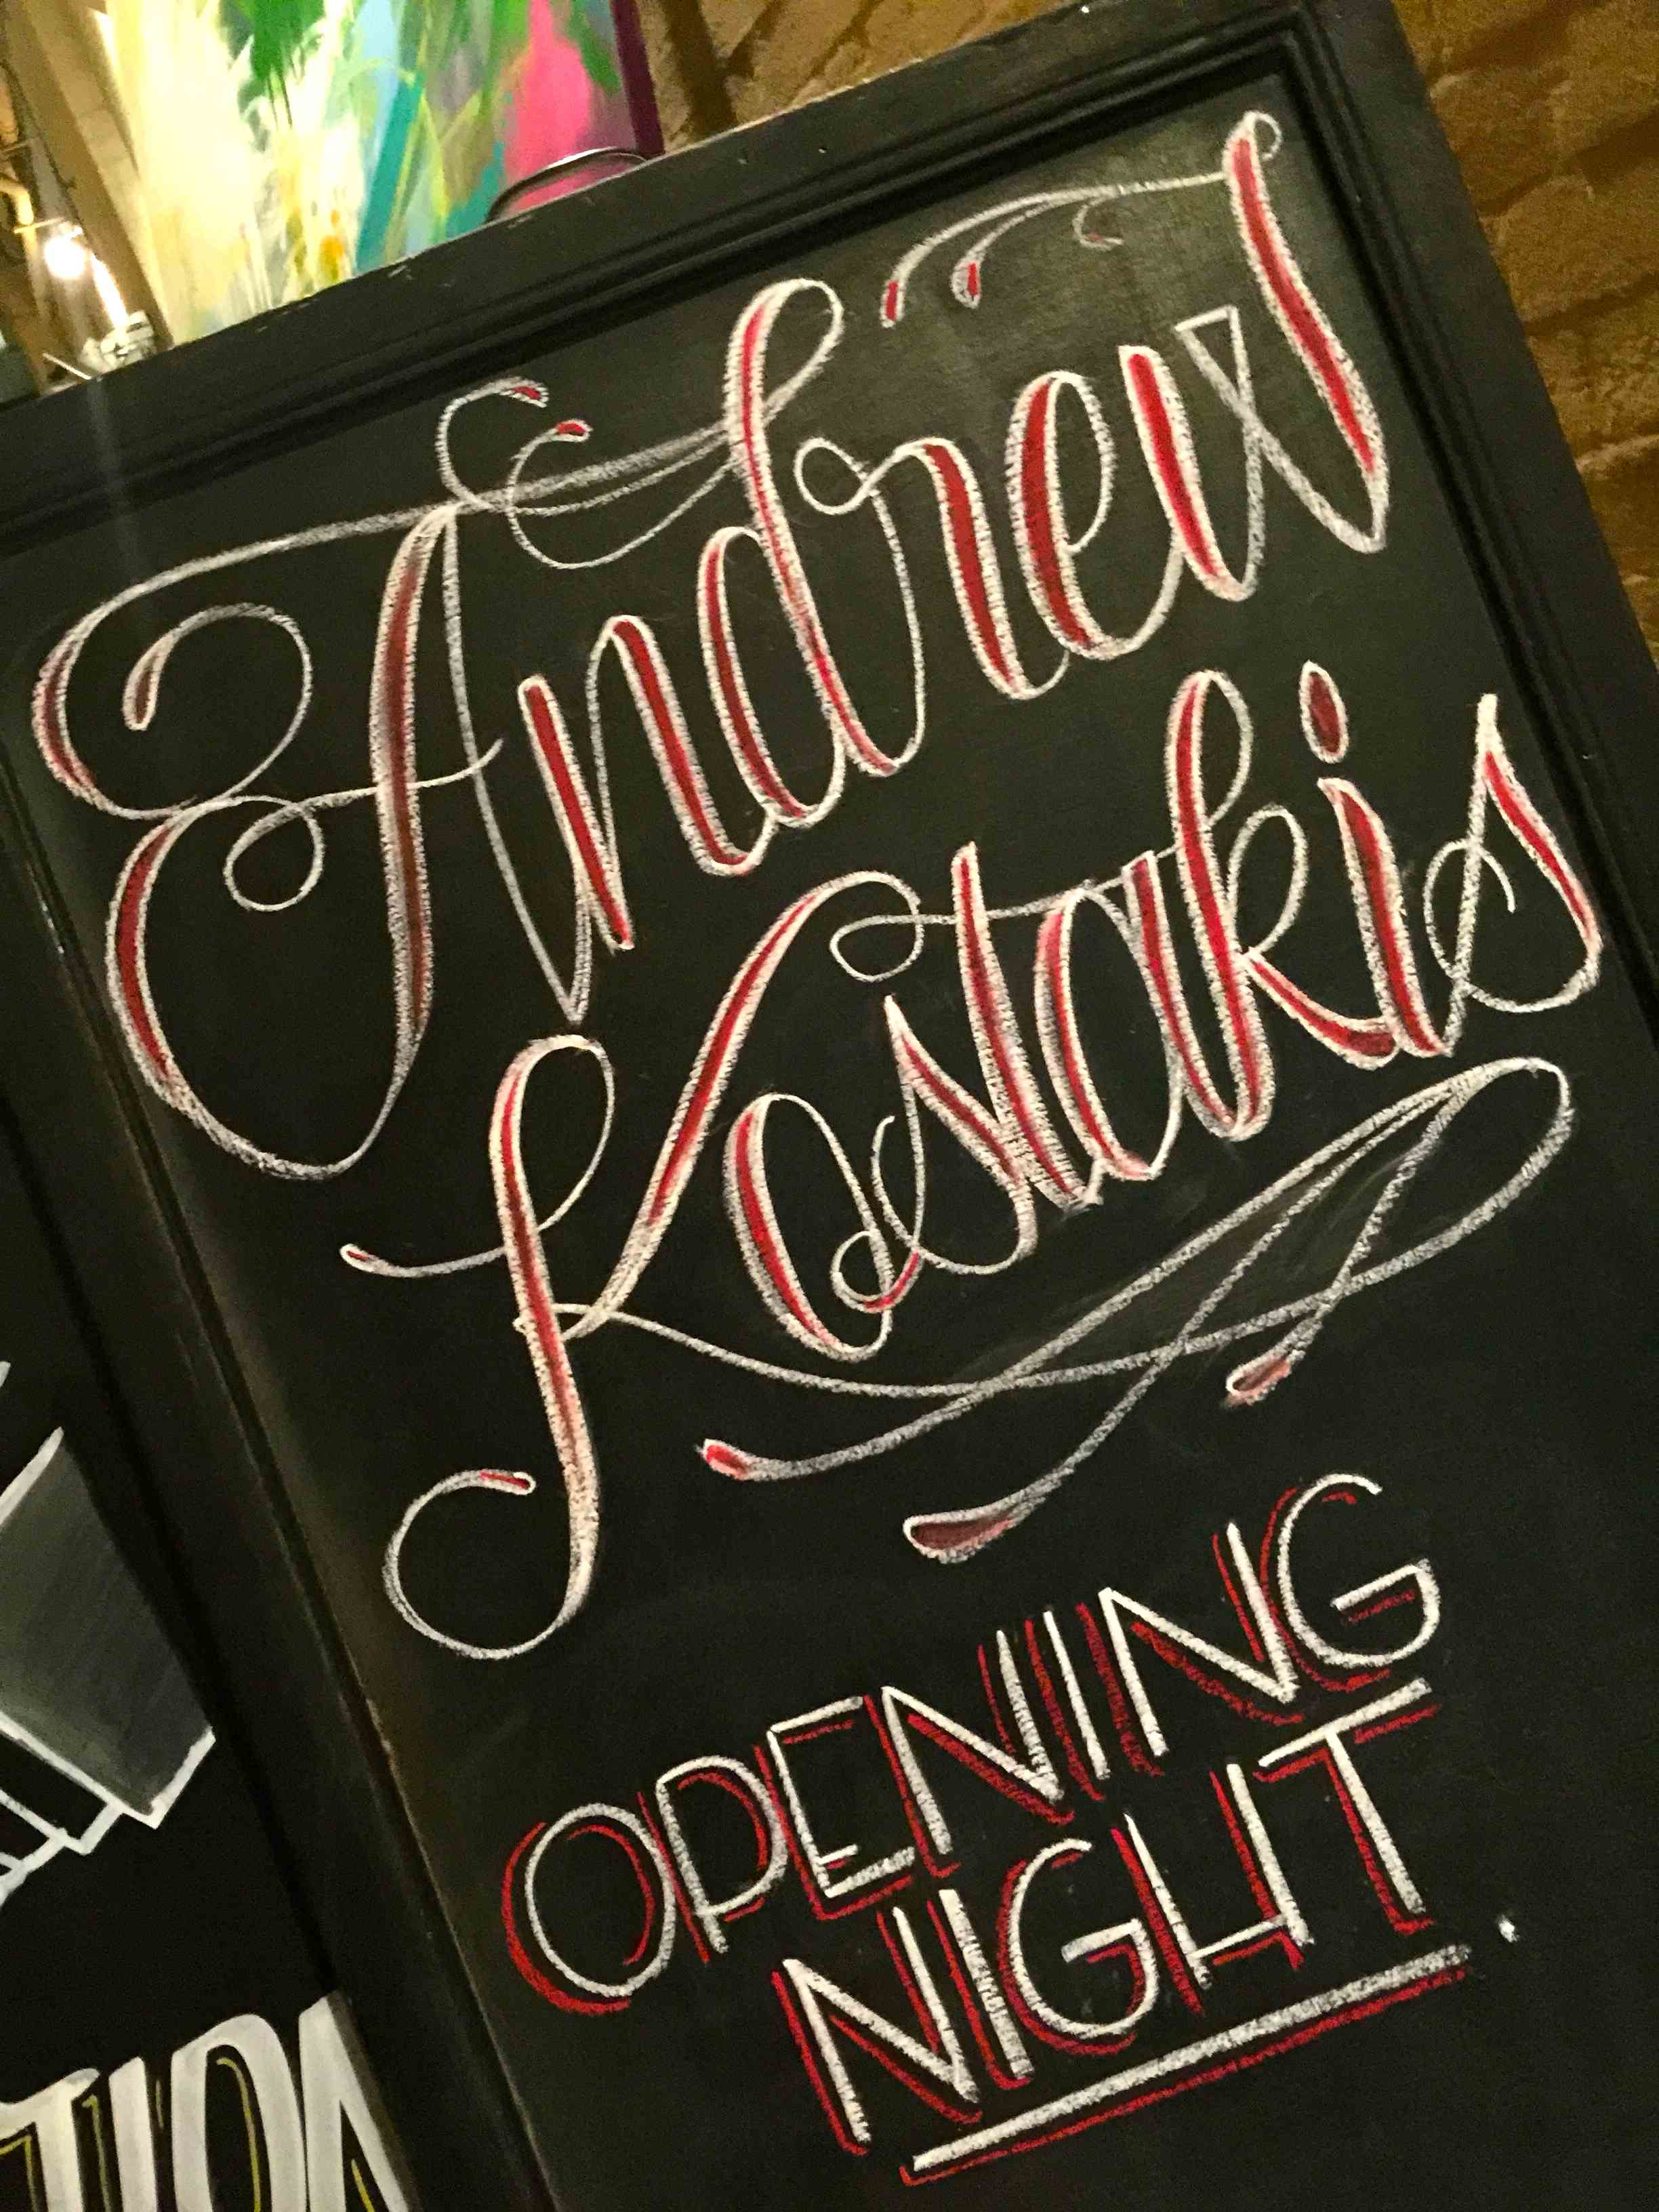 Andrew
Kostakis
OPENING
NIGHT